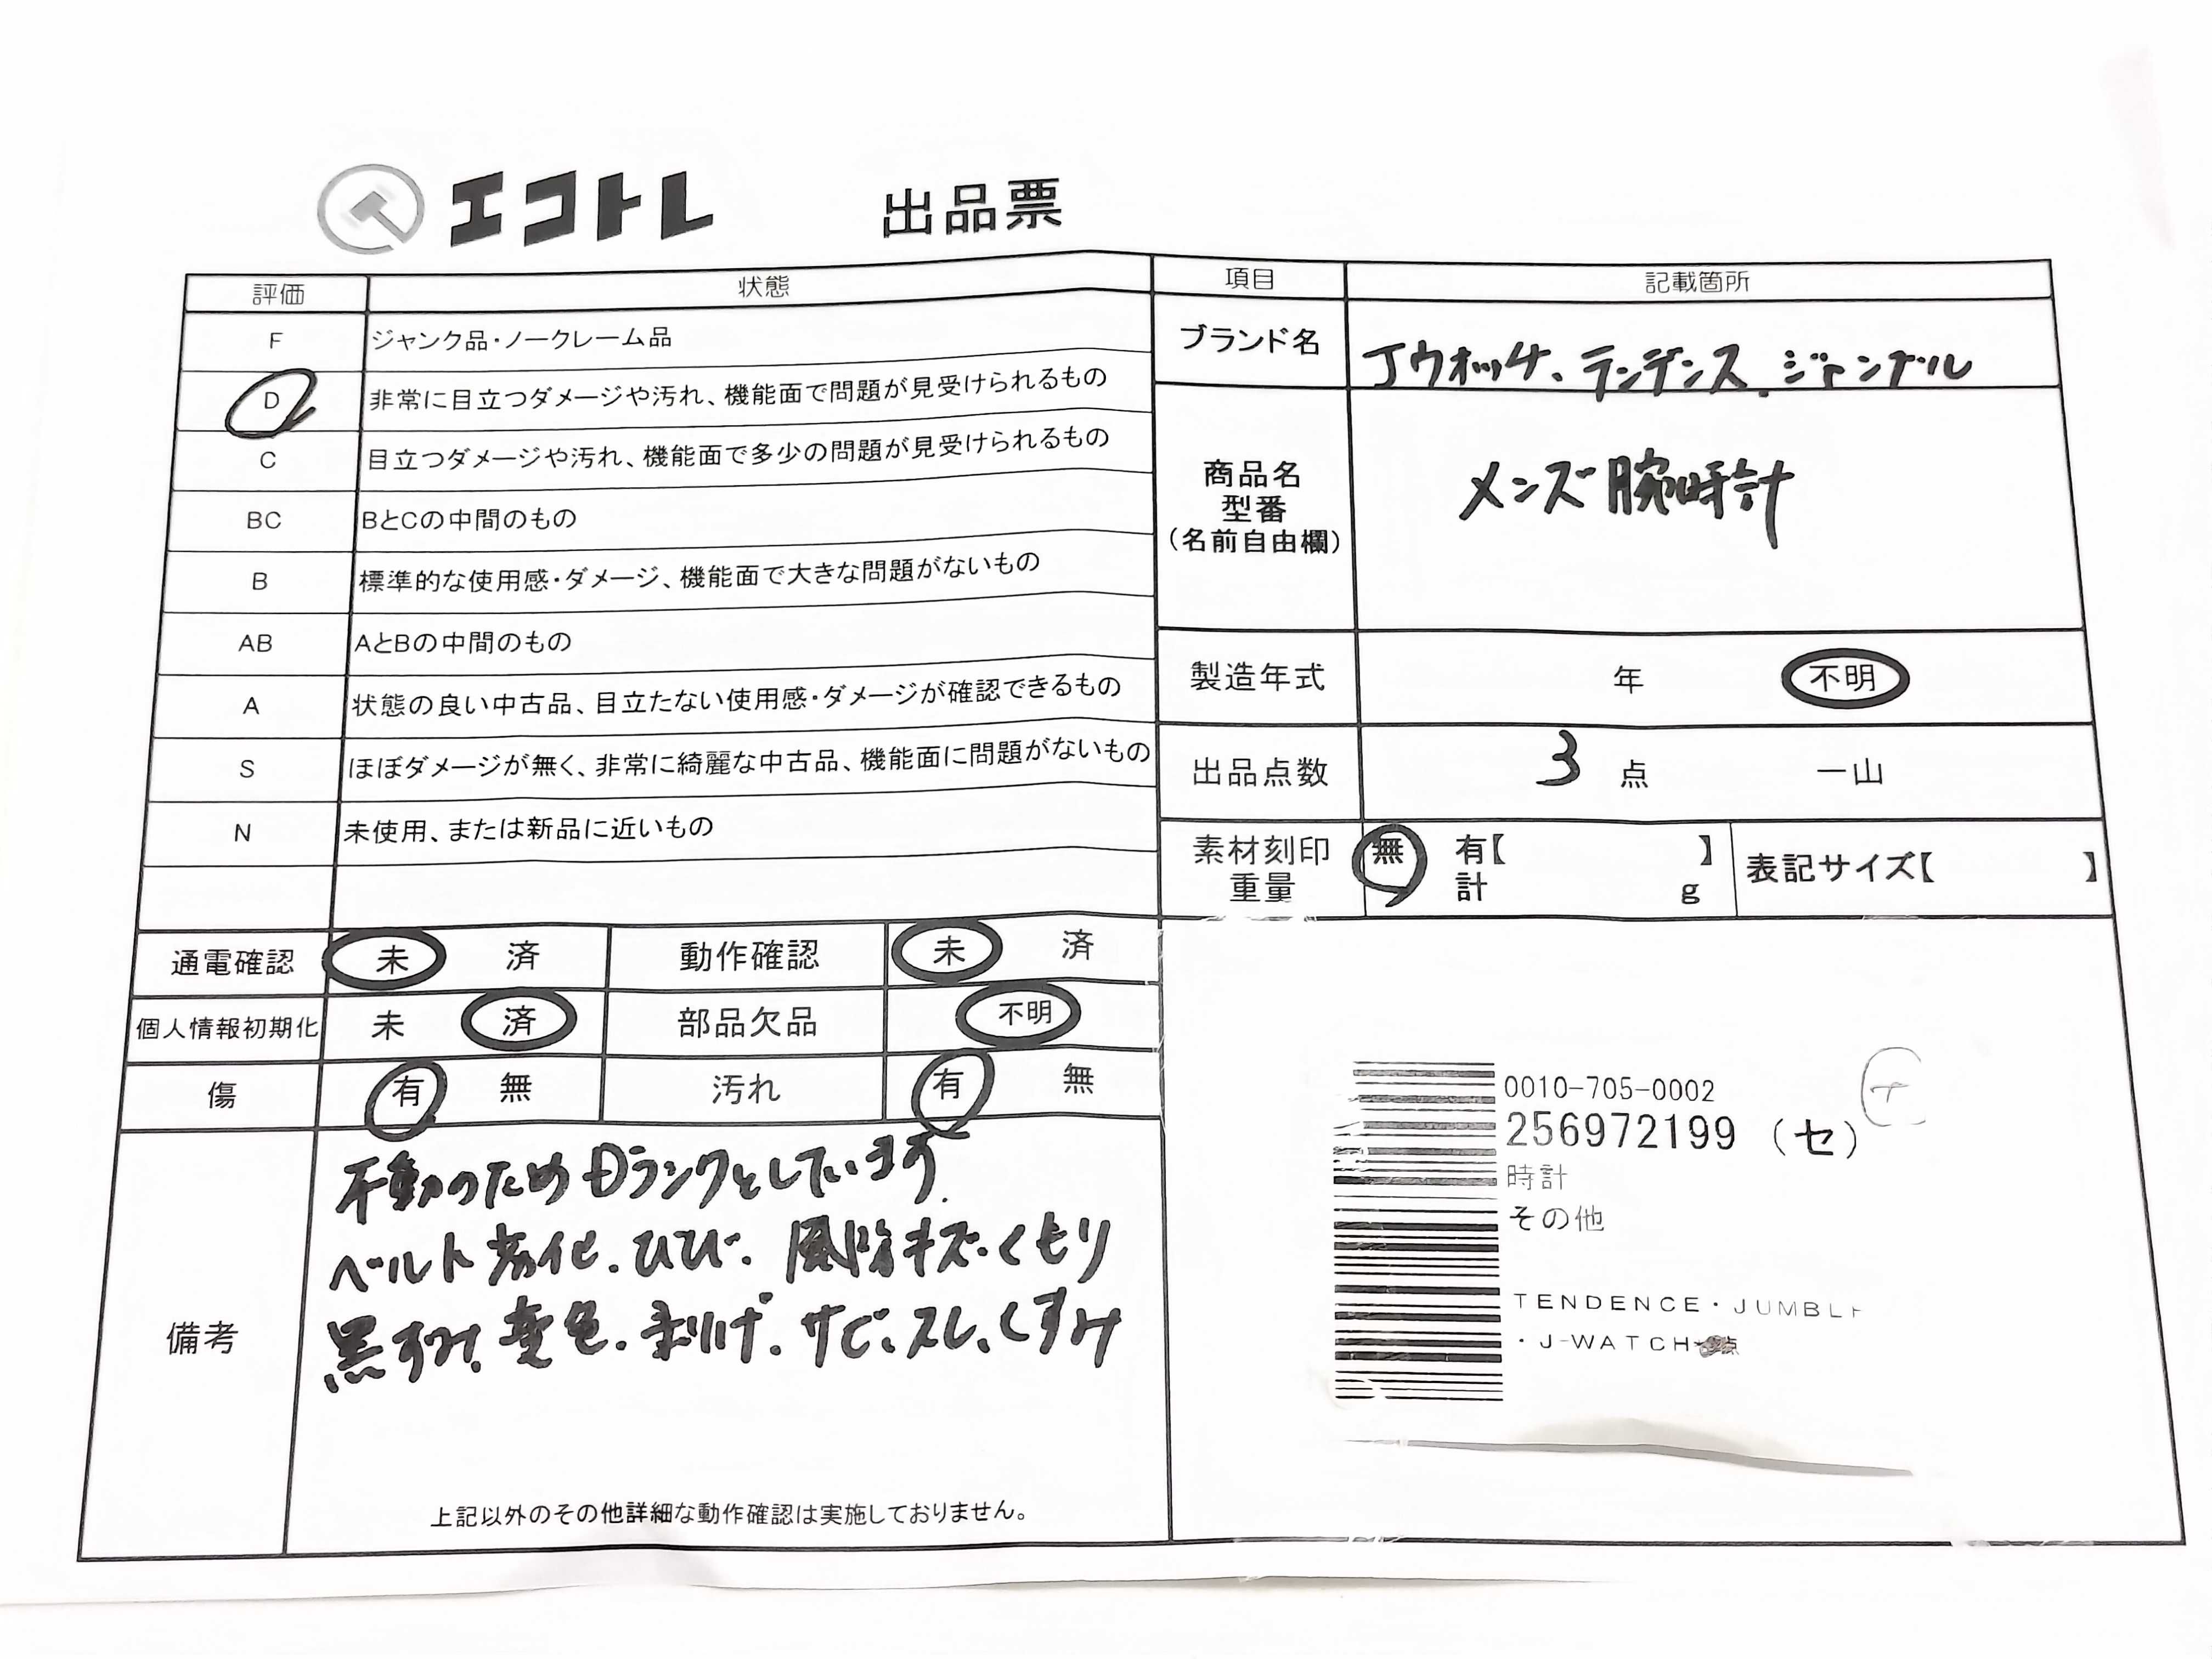 エコトレ 出品票
評価 状態 項目 記載箇所
F ジャンク品・ノークレーム品
D 非常に目立つダメージや汚れ、機能面で問題が見受けられるもの
C 目立つダメージや汚れ、機能面で多少の問題が見受けられるもの
BC BとCの中間のもの
B 標準的な使用感・ダメージ、機能面で大きな問題がないもの
AB AとBの中間のもの
A 状態の良い中古品、目立たない使用感・ダメージが確認できるもの
S ほぼダメージが無く、非常に綺麗な中古品、機能面に問題がないもの
N 未使用、または新品に近いもの
ブランド名 Jウオッチ、テンデンス、
商品名
型番
(名前自由欄)
メンズ腕時計
製造年式 年 不明
出品点数 3 点 一山
素材刻印 無 有【 】
重量 計 g
表記サイズ【 】
通電確認 未 済 動作確認 未 済
個人情報初期化 未 済 部品欠品 不明
傷 有 無 汚れ 有 無
備考
不動のためDランクとしています.
ベルト劣化.ひび.風防キズ.くもり
黒ずみ、変色.剥げ.サビ、スレ、くすみ
上記以外のその他詳細な動作確認は実施しておりません。
0010-705-0002
256972199 (セ)
時計
その他
TENDENCE・JUMBLE
・J-WATCH